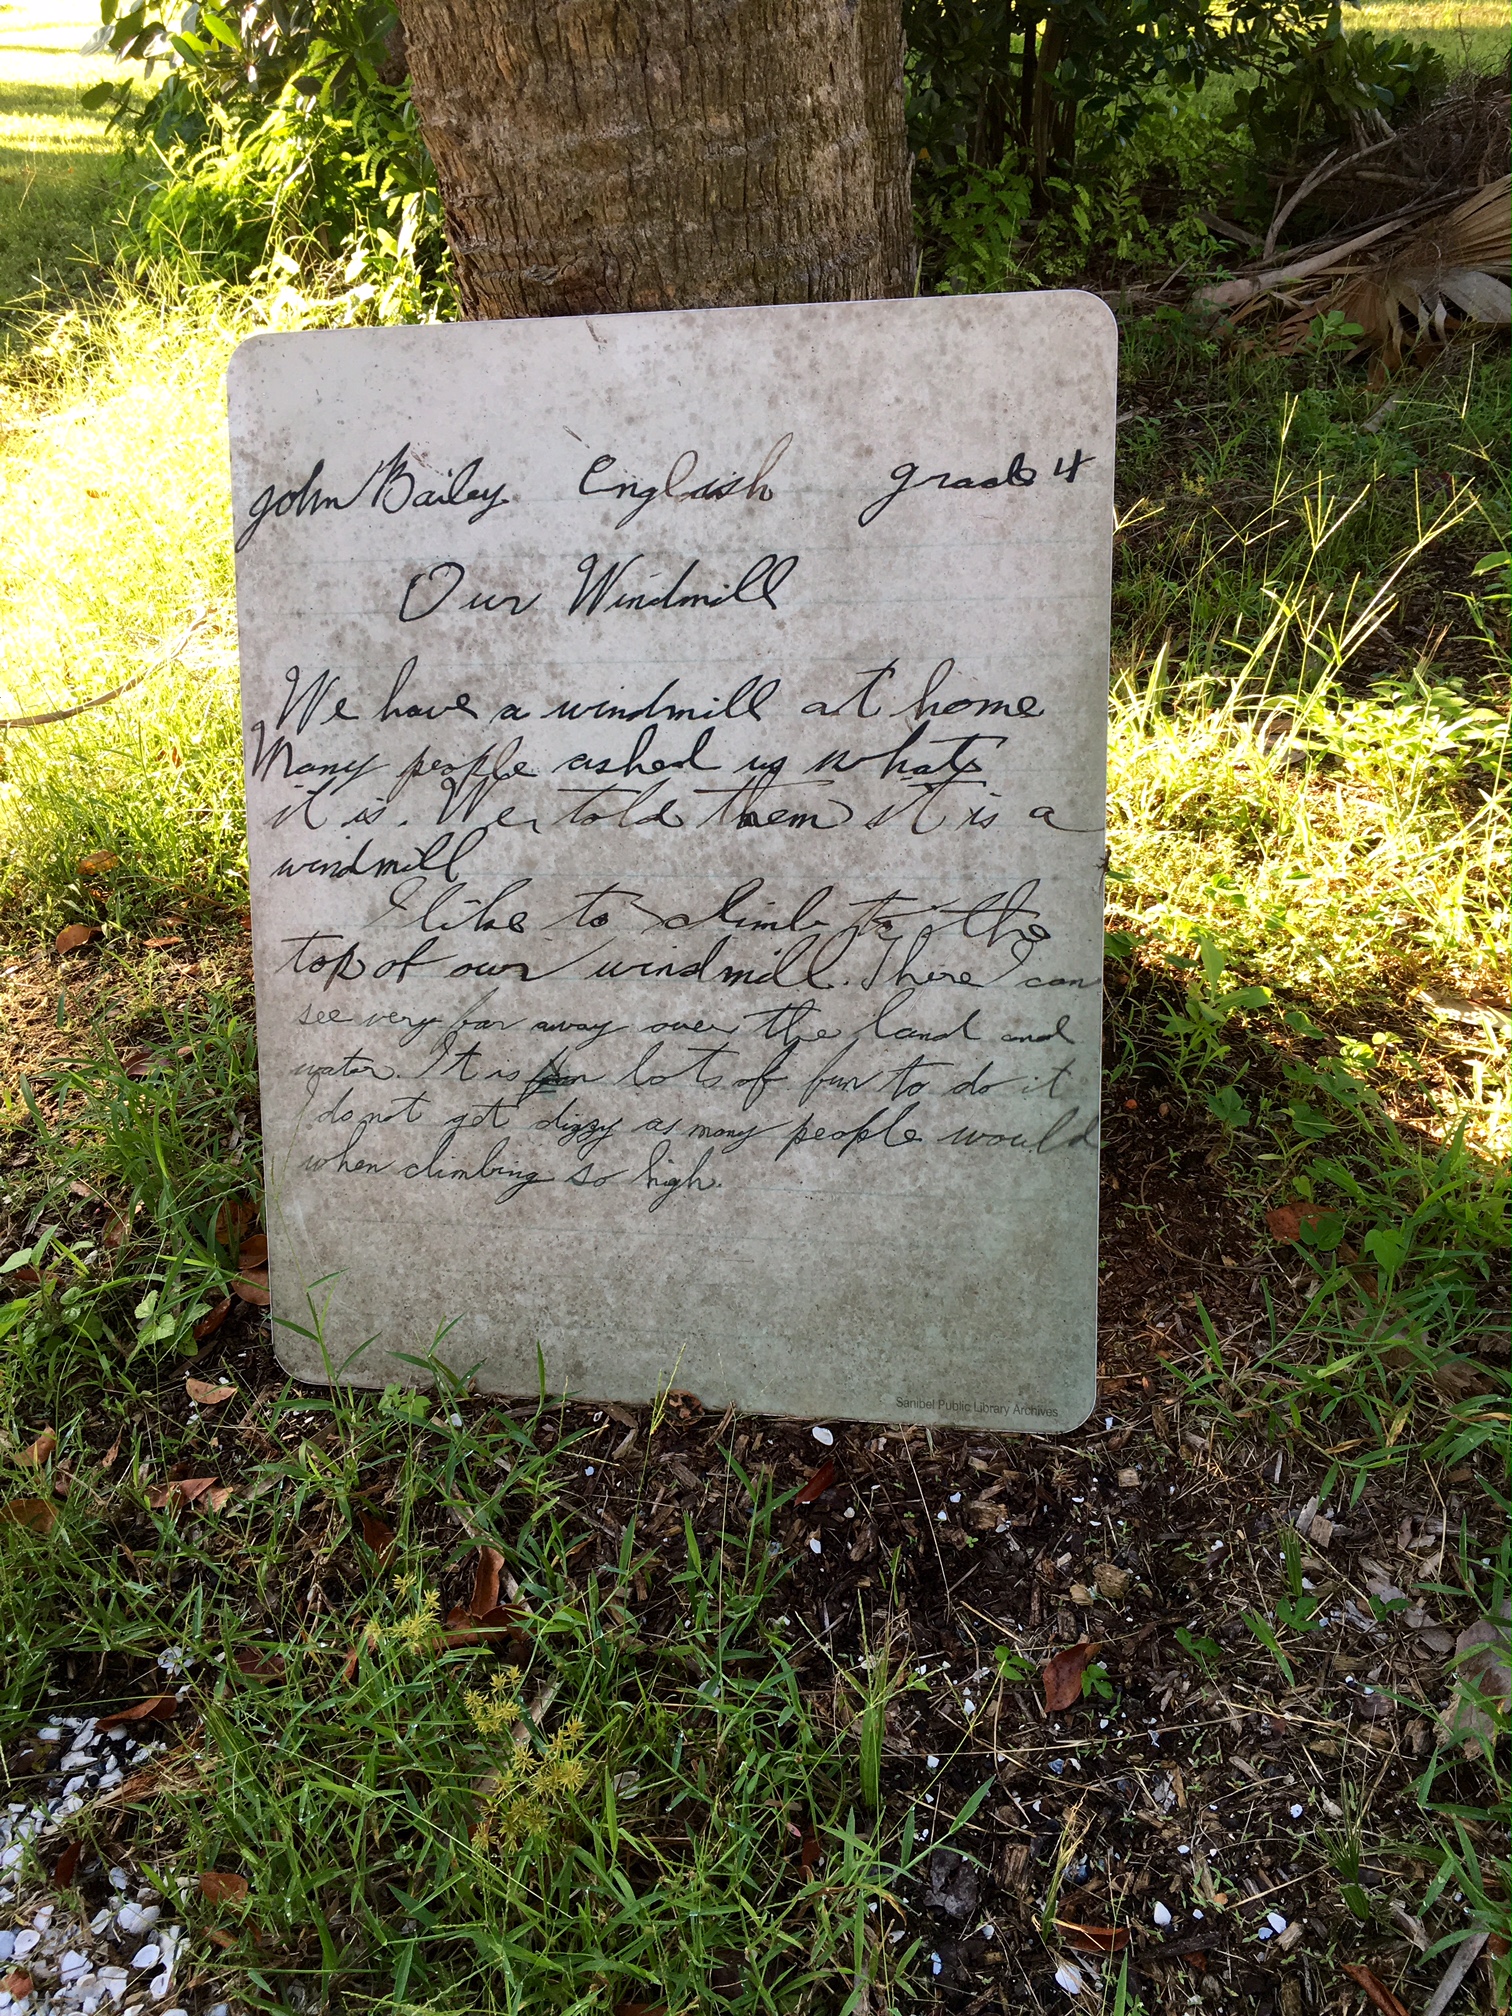 John Bailey English grade 4
Our Windmill
We have a windmill at home
Many people asked us what
it is. We told them it is a
windmill
I like to climb to the
top of our windmill. There I can
see very far away over the land and
water. It is fun lots of fun to do it
I do not get dizzy as many people would
when climbing so high.
Sanibel Public Library Archives